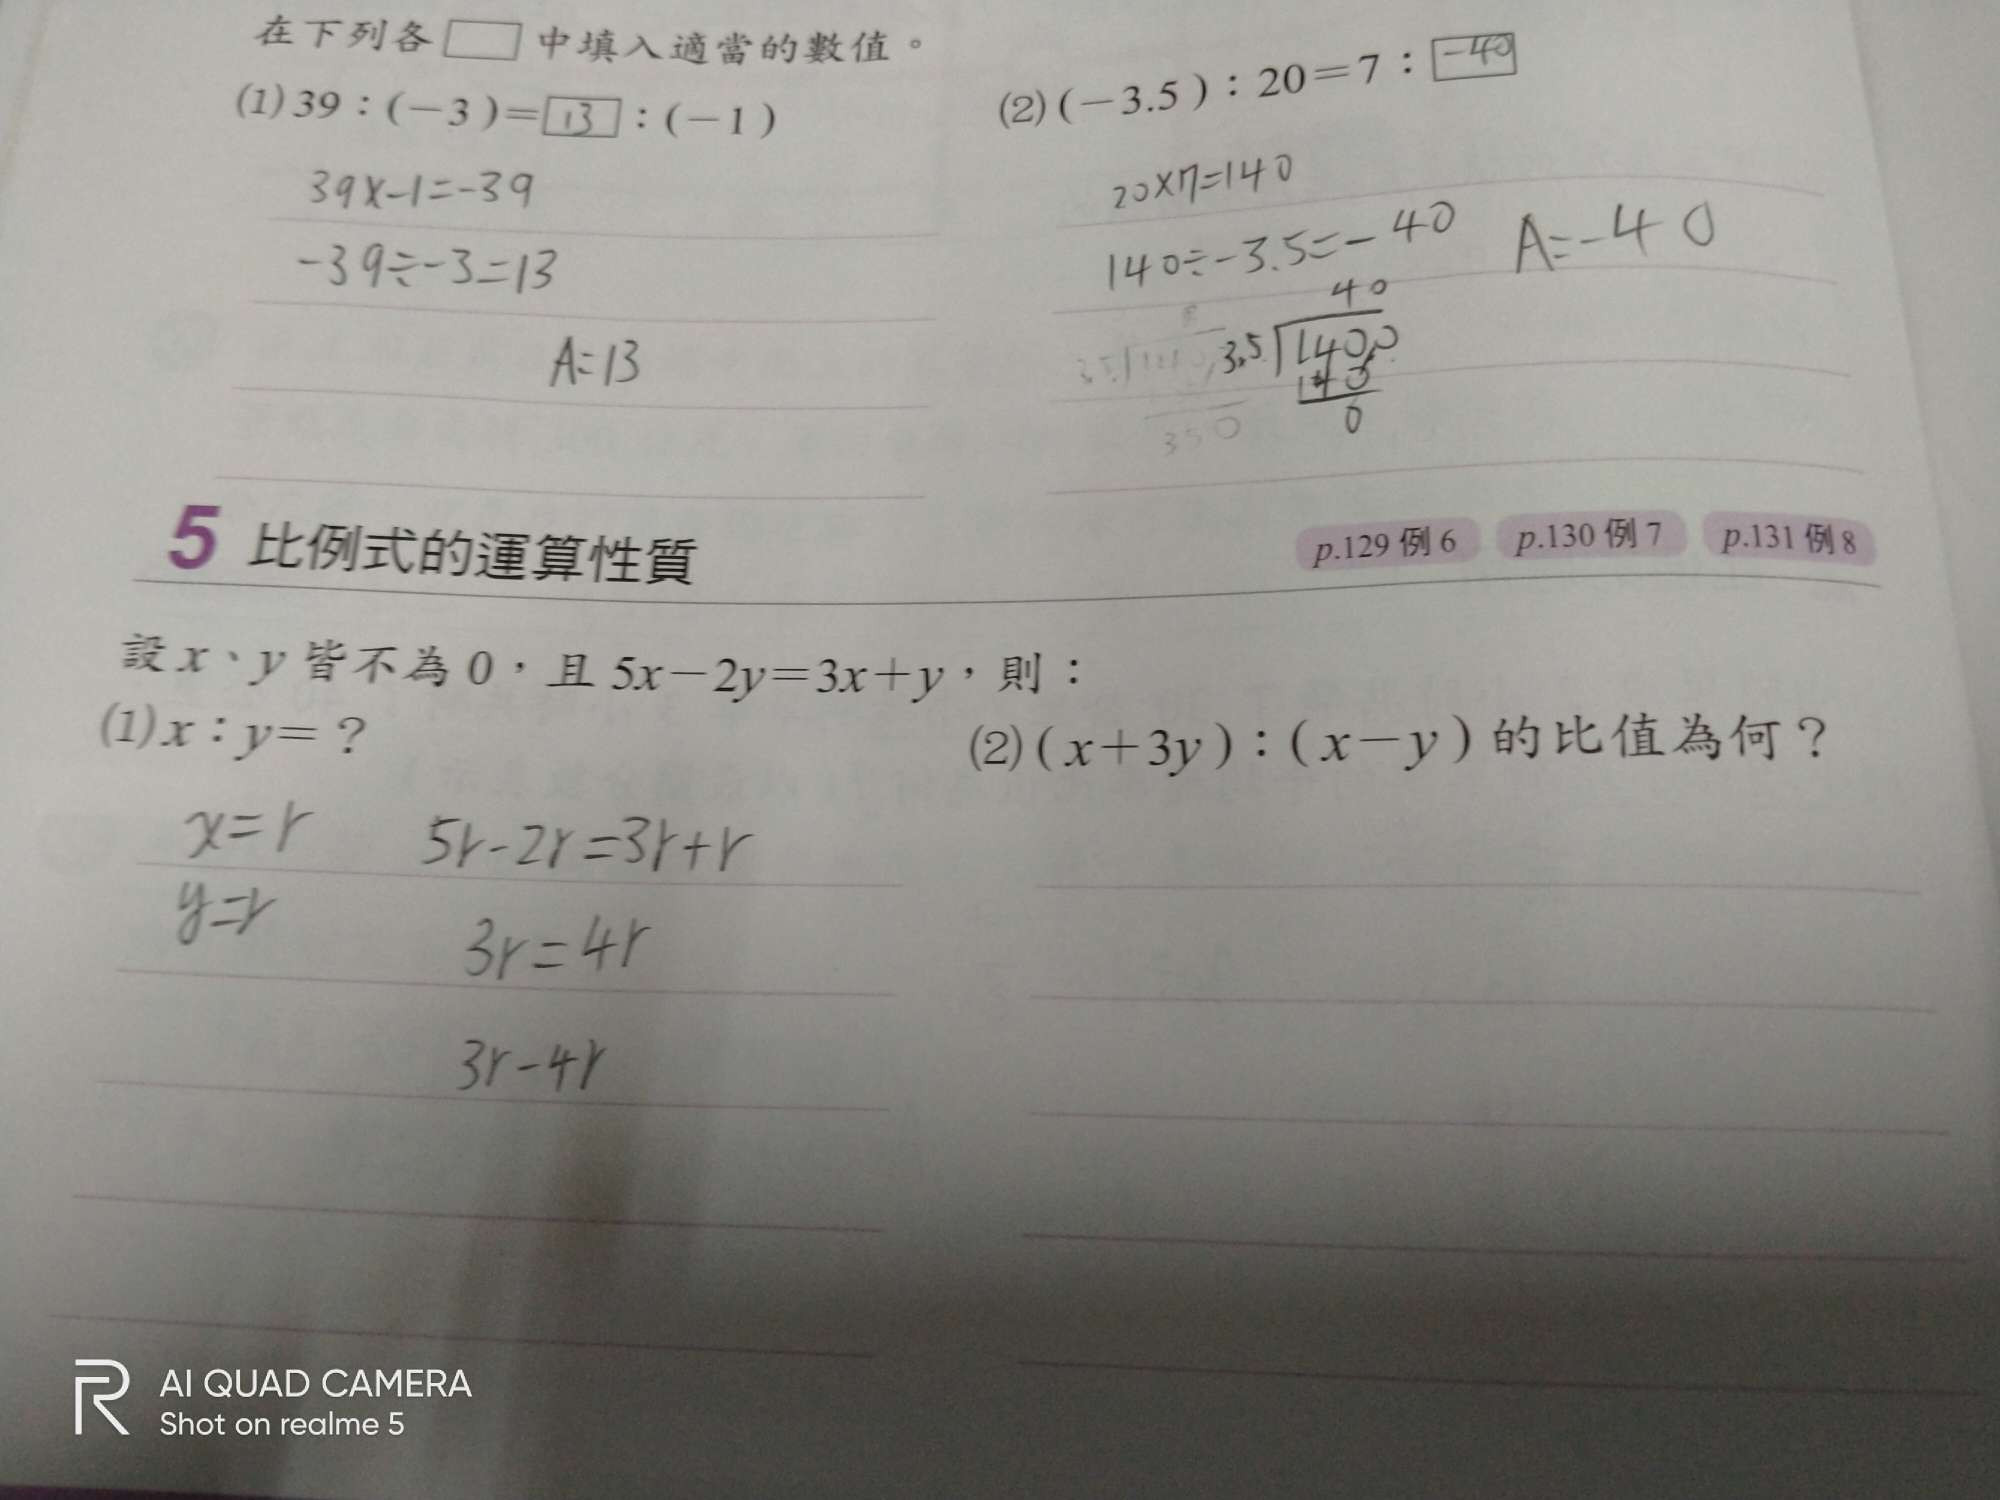 在下列各 中填入適當的數值。
(1) 39：(－3)＝13：(－1)
39x-1=-39
-39÷-3=13
A=13
(2) (－3.5)：20＝7：-40
20×7=140
140÷-3.5=-40 A=-40
40
3.5 1400
140
0
350
5 比例式的運算性質
p.129 例 6 p.130 例 7 p.131 例 8
設 x、y 皆不為 0，且 5x－2y＝3x＋y，則：
(1) x：y＝？
x=r 5r-2r=3r+r
y=r
3r=4r
3r-4r
(2) (x＋3y)：(x－y) 的比值為何？
AI QUAD CAMERA
Shot on realme 5